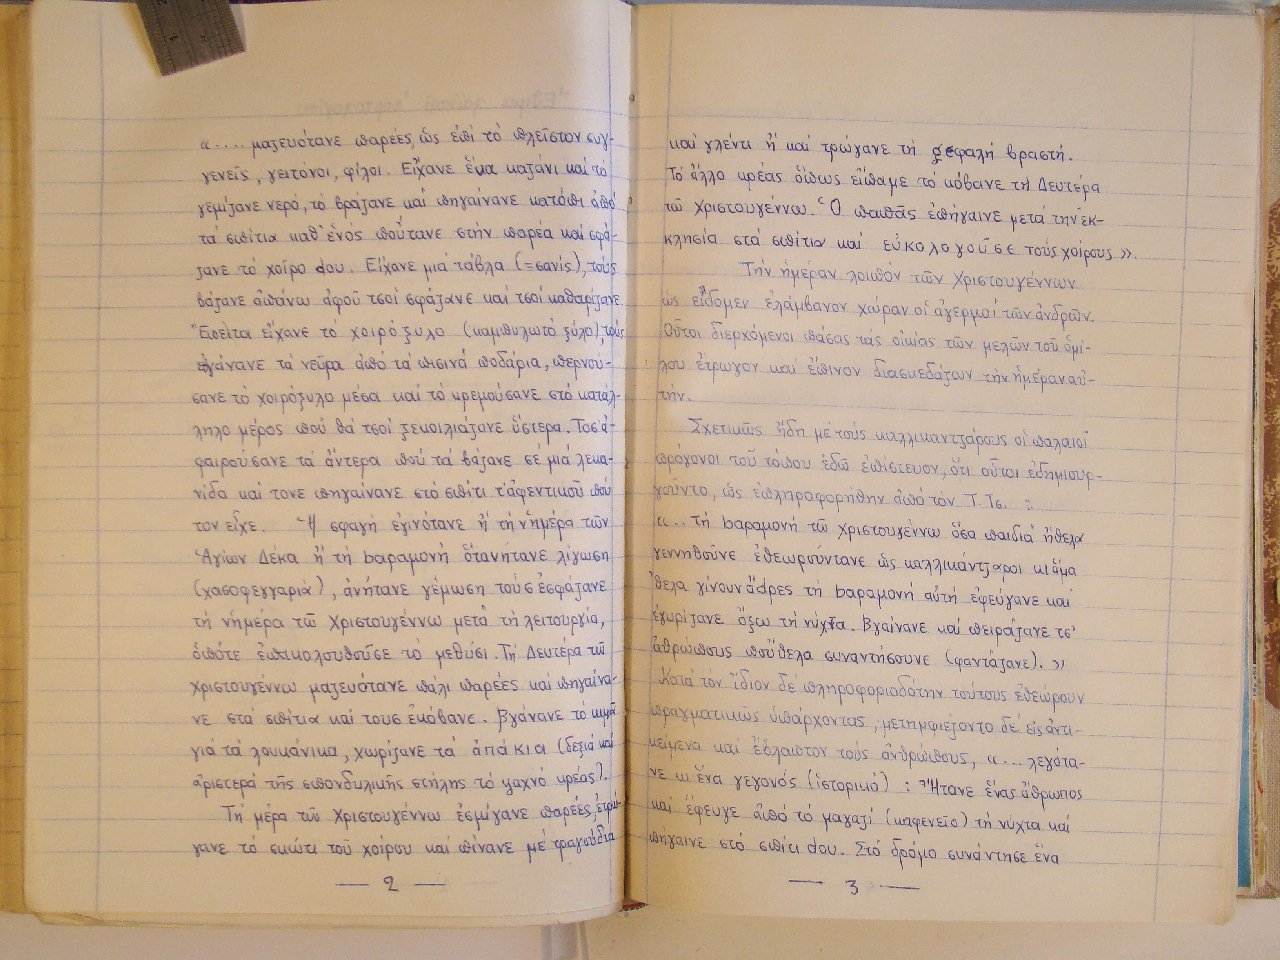 «.... μαζευότανε παρέες, ὡς ἐπί τό πλεῖστον συγ-
γενεῖς, γειτόνοι, φίλοι. Εἴχανε ἕνα καζάνι καί τό
γεμίζανε νερό, τό βράζανε καί πηγαίνανε κατόπι ἀπό
τά σπίτια καθ' ἑνός πούτανε στήν παρέα καί σφά-
ζανε τό χοῖρο dου. Εἴχανε μιά τάβλα (=σανίς), τούς
βάζανε ἀπάνω ἀφοῦ τσοί σφάζανε καί τσοί καθαρίζανε
Ἔπειτα εἴχανε τό χοιρόξυλο (καμπυλωτό ξύλο), τούς
εγάνανε τά νεῦρα ἀπό τά πισινά ποδάρια, περνού-
σανε τό χοιρόξυλο μέσα καί τό κρεμούσανε στό κατάλ-
ληλο μέρος πού θά τσοί ξεκοιλιάζανε ὕστερα. Τοσ' ἀ-
φαιρούσανε τά ἄντερα πού τά βάζανε σέ μιά λεκα-
νίδα καί τονε πηγαίνανε στό σπίτι τ' ἀφεντικοῦ πού
τον εἶχε. Ἡ σφαγή εγινότανε ἤ τή ν'ημέρα τῶν
Ἁγίων Δέκα ἤ τή bαραμονή ὅταν ἤτανε λίγωση
(χασοφεγγαριά), ἀν ἤτανε γέμωση τούς ἐσφάζανε
τή ν'ημέρα τῶ Χριστουγέννω μετά τή λειτουργία,
ὁπότε ἐπακολουθοῦσε τό μεθύσι. Τή Δευτέρα τῶ
Χριστουγέννω μαζευότανε πάλι παρέες καί πηγαίνα-
νε στά σπίτια καί τους ἐκόβανε. Βγάνανε τό κιμᾶ
γιά τά λουκάνικα, χωρίζανε τά ἀπάκια (δεξιά καί
ἀριστερά τῆς σπονδυλικῆς στήλης τό ψαχνό κρέας).
Τή μέρα τῶ Χριστουγέννω ἐσμίγανε παρέες, ἐτρώ-
γανε τό σκώτι του χοίρου καί πίνανε μέ τραγούδια
— 2 —
καί γλέντι ἤ καί τρώγανε τή gεφαλή βραστή.
Τό ἄλλο κρέας ὅπως εἴπαμε τό κόβανε τή Δευτέρα
τῶ Χριστουγέννω. Ὁ παπᾶς ἐπήγαινε μετά την ἐκ-
κλησία στά σπίτια καί εὐκολογοῦσε τούς χοίρους».
Τήν ἡμέραν λοιπόν τῶν Χριστουγέννων
ὡς εἴδομεν ἐλάμβανον χώραν οἱ ἀγερμοί τῶν ἀνδρῶν.
Οὗτοι διερχόμενοι πάσας τάς οἰκίας τῶν μελῶν τοῦ ὁμί-
λου ἔτρωγον καί ἔπινον διασκεδάζων τήν ἡμέραν αὐ-
τήν.
Σχετικῶς ἤδη μέ τούς καλλικαντζάρους οἱ παλαιοί
πρόγονοι τοῦ τόπου ἐδῶ ἐπίστευον, ὅτι οὗτοι ἐδημιουρ-
γοῦντο, ὡς ἐπληροφορήθην ἀπό τόν Τ. Τς. :
«.. τή bαραμονή τῶ Χριστουγέννω ὅσα παιδιά ἤθελα
γεννηθοῦνε ἐθεωρούντανε ὡς καλλικάντζαροι κι ἅμα
'θελα γίνουν ἄdρες τή bαραμονή αὐτή ἐφεύγανε καί
ἐγυρίζανε ὄξω τή νύχτα. Βγαίνανε καί πειράζανε τσ'
ἀθρώπους πού 'θελα συναντήσουνε (φαντάζανε).»
Κατά τόν ἴδιον δέ πληροφοριοδότην τούτους ἐθεώρουν
πραγματικῶς ὑπάρχοντας, μετημφιέζοντο δέ εἰς ἀντι-
κείμενα καί ἔβλαπτον τούς ἀνθρώπους, «... λεγότα-
νε κι ἕνα γεγονός (ἱστορικό) : Ἤτανε ἕνας ἄθρωπος
καί ἔφευγε ἀπό τό μαγαζί (καφενεῖο) τή νύχτα καί
πήγαινε στό σπίτι dου. Στό δρόμο συνάντησε ἕνα
— 3 —